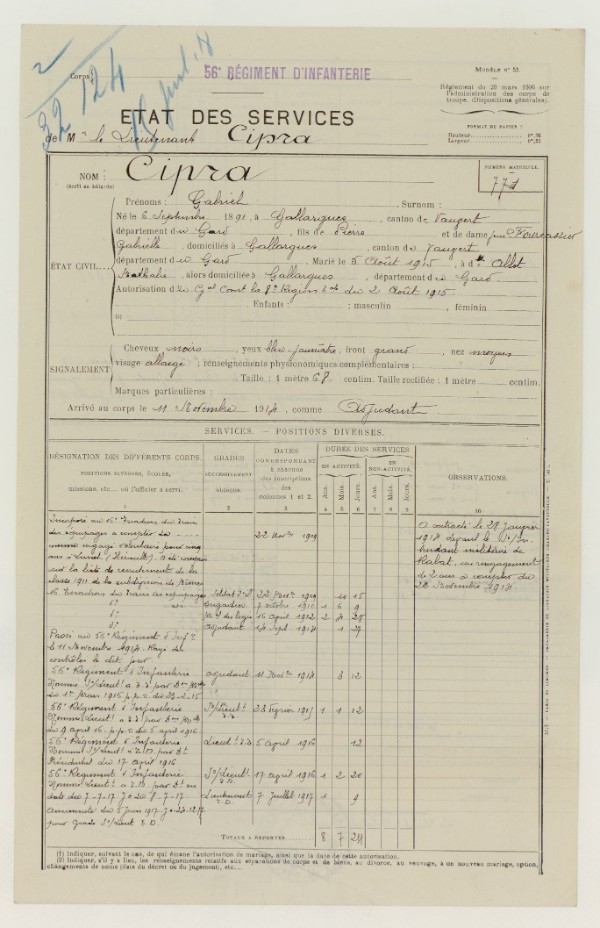 32 124
Corps
56e RÉGIMENT D'INFANTERIE
MODÈLE N° 53.
Règlement du 20 mars 1906 sur
l'administration des corps de
troupe. (Dispositions générales).
FORMAT DU PAPIER :
Hauteur
Largeur
ETAT DES SERVICES
de Mr le Lieutenant Cipra
NOM : Cipra
(écrit en bâtarde)
NUMÉRO MATRICULE.
Prénoms : Gabriel . Surnom :
Né le 6 Septembre 1891, à Gallargues , canton de Vauvert
département du Gard , fils de Pierre et de dame
Gabrielle , domiciliés à Gallargues , canton de Vauvert
département du Gard . Marié le 5 Août 1915 , à dlle Allot
Nathalie , alors domiciliée à Gallargues , département du Gard
Autorisation du Gal Comt la 8e Région du 2 Août 1915.
ÉTAT CIVIL
Enfants : masculin , féminin
SIGNALEMENT
Cheveux noirs , yeux bleu-jaunâtre, front grand , nez moyen
visage allongé ; renseignements physionomiques complémentaires :
Taille : 1 mètre 68 centim. Taille rectifiée : 1 mètre centim.
Marques particulières :
Arrivé au corps le 11 Novembre 1914, comme Adjudant
SERVICES. — POSITIONS DIVERSES.
DÉSIGNATION DES DIFFÉRENTS CORPS,
POSITIONS DIVERSES, ÉCOLES,
missions, etc., où l'officier a servi.
GRADES
SUCCESSIVEMENT
obtenus.
DATES
CORRESPONDANT
à chacune
des inscriptions
des
colonnes 1 et 2.
DURÉE DES SERVICES
EN ACTIVITÉ.
EN NON-ACTIVITÉ.
Ans. Mois. Jours. Ans. Mois. Jours.
OBSERVATIONS.
1 2 3 4 5 6 7 8 9 10
Incorporé au 16e Escadron du train
des équipages à compter du
22 Nov. 1909
comme engagé volontaire pour cinq
ans à Lunel (Hérault)
sur la liste de recrutement de la
classe 1911 de la subdivision de Nîmes
A contracté le 21 Janvier
1914
Rabat, un rengagement
de 2 ans à compter du
22 Novembre 1914
16e Escadron du train des équipages Soldat 2e cl. 22 Nov. 1909 10 15
do Brigadier 7 octobre 1910 1 6 9
do Mal des logis 16 avril 1912 2 4 28
do adjudant 14 Sept. 1914 1 27
Passé au 56e Régiment d'Infie
le 11 Novembre 1914. Rayé des
contrôles le dit jour.
56e Régiment d'Infanterie adjudant 11 Nov. 1914 3 12
56e Régiment d'Infanterie S/Lieut. 23 février 1915 1 1 12
du 9 avril 16
56e Régiment d'Infanterie Lieut. 5 avril 1916 12
Président du 17 avril 1916
56e Régiment d'Infanterie S/Lieut. 17 avril 1916 1 2 20
date du 7-7-17
Lieutenant 7 Juillet 1917 1 9
TOTAUX A REPORTER 8 7 24
(1) Indiquer, suivant le cas, de qui émane l'autorisation de mariage, ainsi que la date de cette autorisation.
(2) Indiquer, s'il y a lieu, les renseignements relatifs aux séparations de corps et de biens, au divorce, au veuvage, à un nouveau mariage, option,
changements de noms (date du décret ou du jugement), etc...